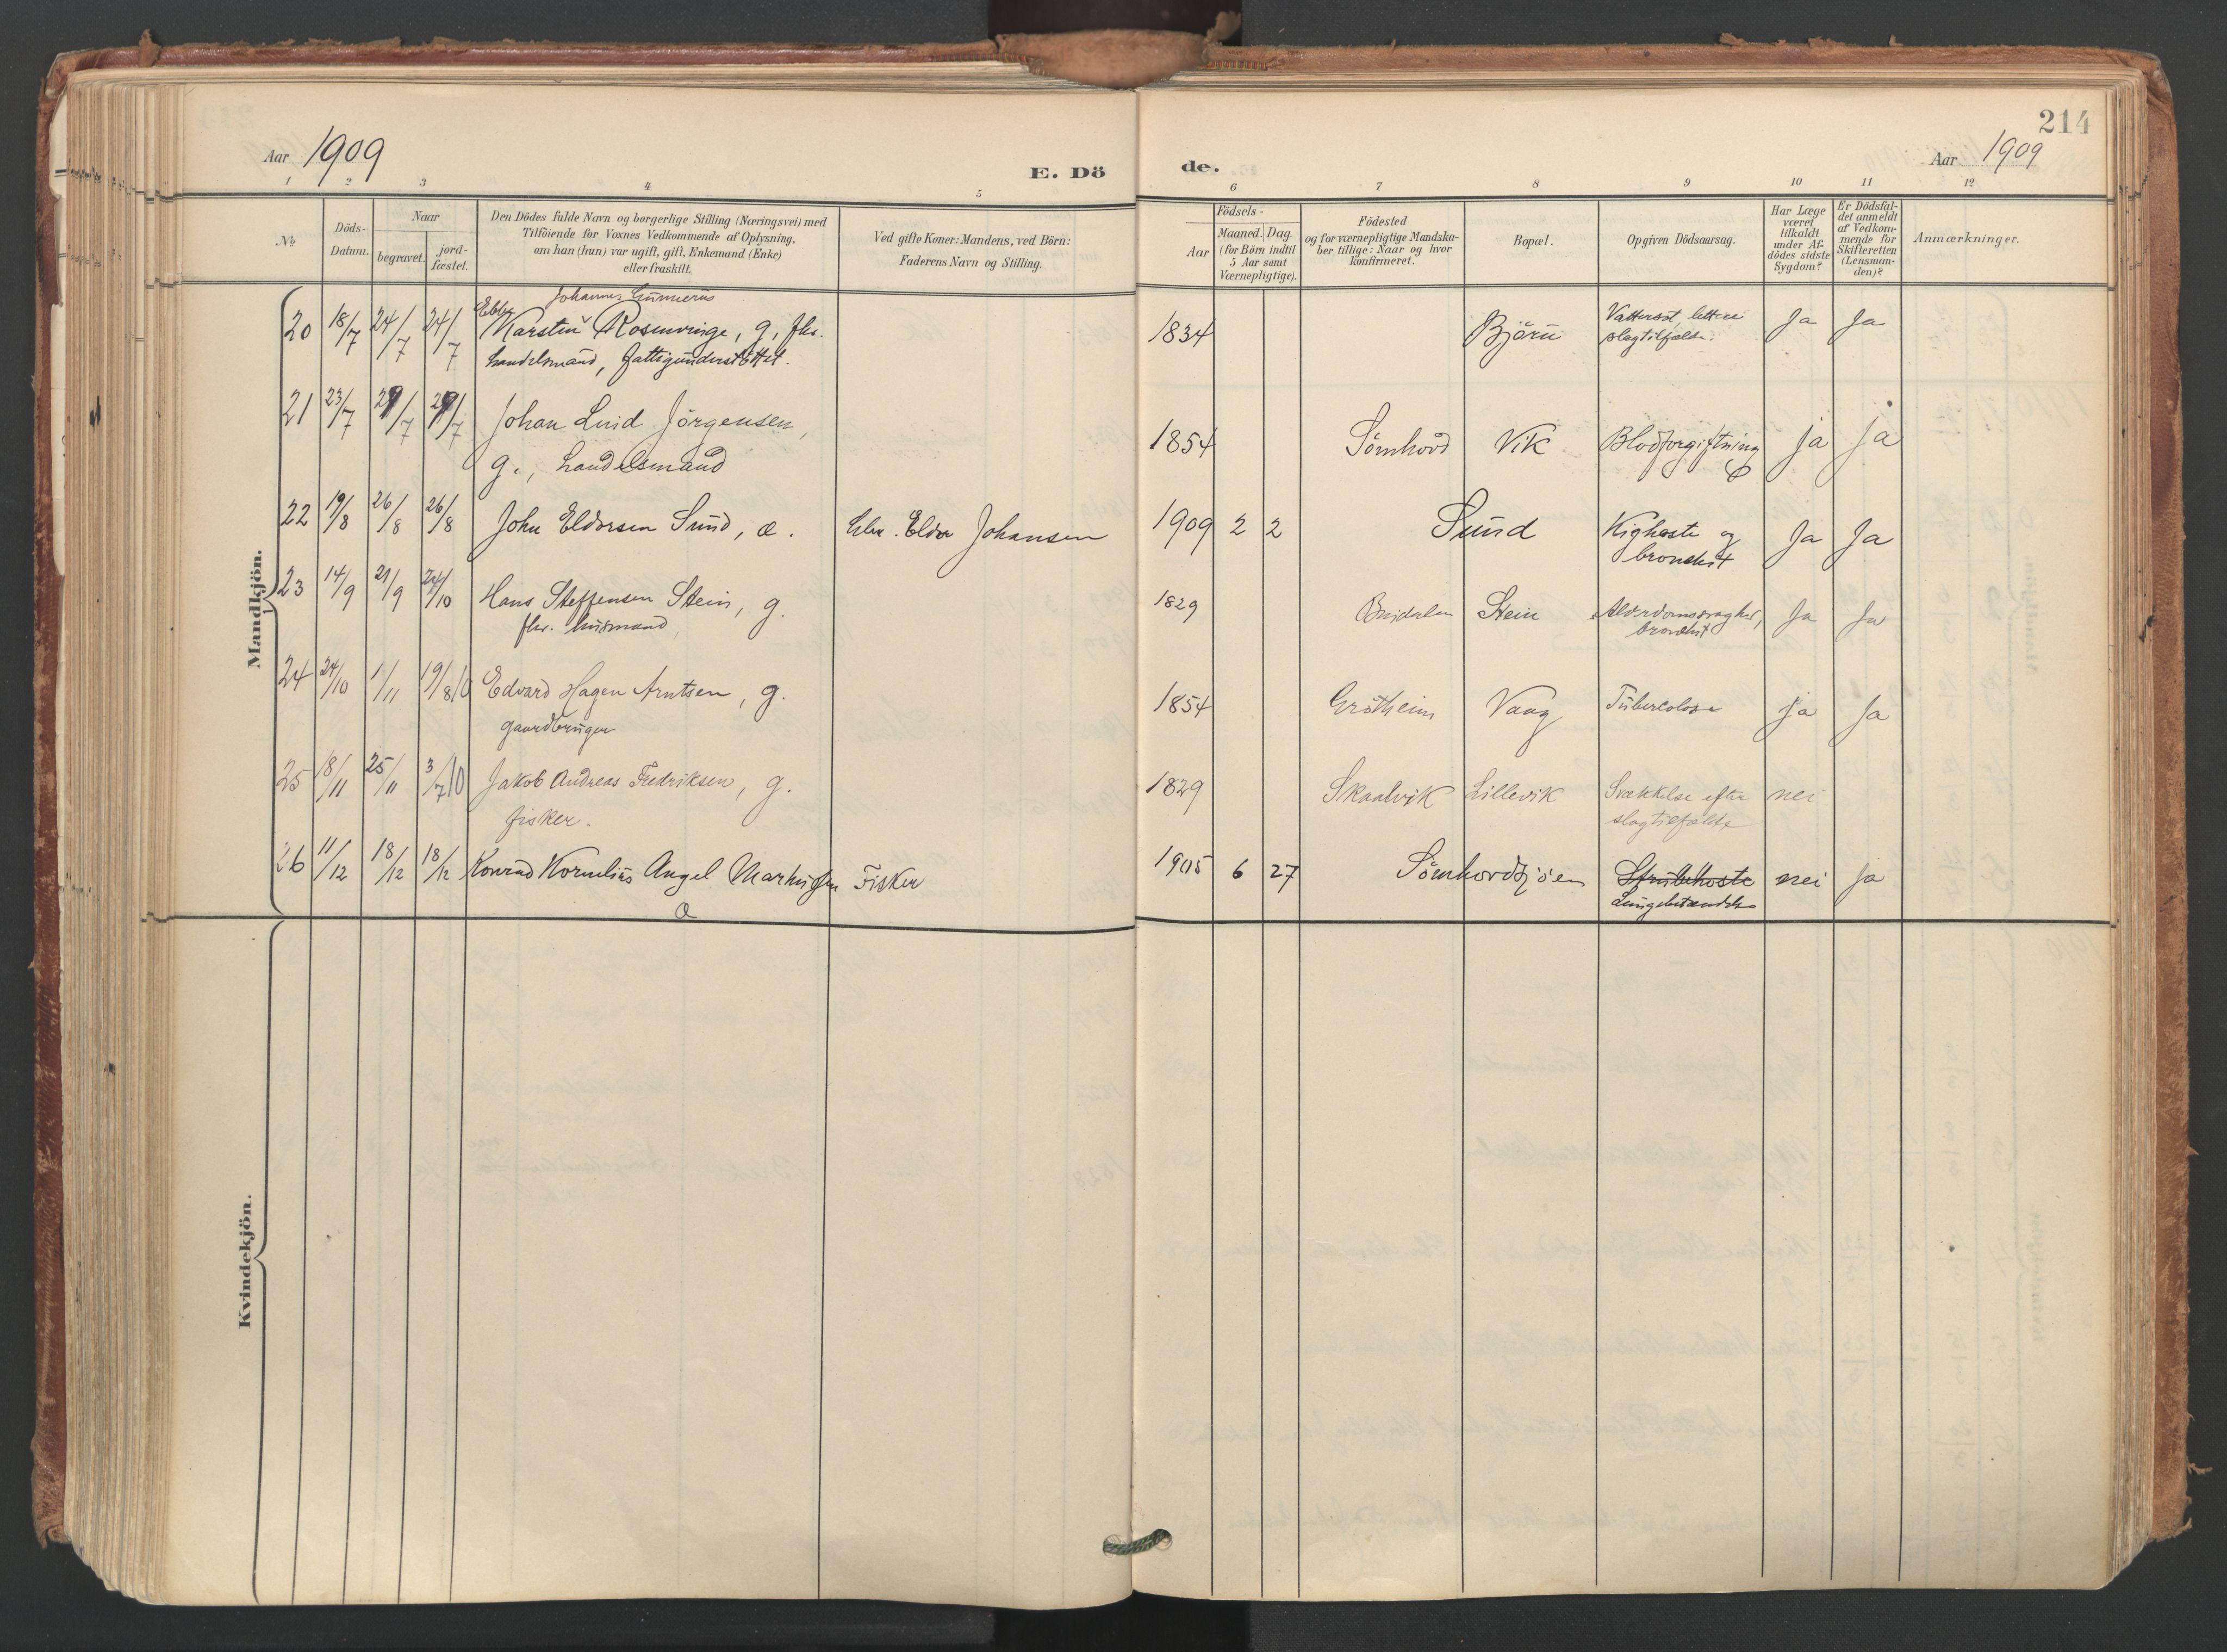 214
Aar 1909
E. Dö
de.
Aar 1909
1 2 3 4 5 6 7 8 9 10 11 12
No
Döds-
Datum.
Naar
begravet.
jord-
fæstet.
Den Dödes fulde Navn og borgerlige Stilling (Næringsvei) med
Tilföiende for Voxnes Vedkommende af Oplysning,
om han (hun) var ugift, gift, Enkemand (Enke)
eller fraskilt.
Ved gifte Koner: Mandens, ved Börn:
Faderens Navn og Stilling.
Födsels-
Aar
Maaned. Dag.
(for Börn indtil
5 Aar samt
Værnepligtige).
Födested
og for værnepligtige Mandska-
ber tillige: Naar og hvor
konfirmeret.
Bopæl.
Opgiven Dödsaarsag.
Har Læge
været
tilkaldt
under Af-
dödes sidste
Sygdom?
Er Dödsfal-
det anmeldt
af Vedkom-
mende for
Skifteretten
(Lensman-
den)?
Anmærkninger.
Mandkjön.
Johannes Gunnerus
20 18/7 24/7 24/7 Ebbe Karsten Rosenvinge, g, fhv. 1834 Björn Vattersot, lettere Ja Ja
handelsmand, fattigunderstöttet. slagtilfælde.
21 23/7 29/7 29/7 Johan Lund Jörgensen, 1854 Sömhovd Vik Blodforgiftning ja ja
g., handelsmand
22 19/8 26/8 26/8 John Eldorsen Sund, æ. Eldor Johansen 1909 2 2 Sund Kighoste og Ja Ja
bronchit
23 14/9 21/9 /10 Hans Steffensen Stein, g. 1829 Stein Alderdomssvaghet, Ja Ja
fhv. husmand bronchit
24 24/10 1/11 19/8 10 Edvard Hagen Arntsen, g. 1854 Grötheim Vaag Tuberculose ja Ja
gaardbruger
25 18/11 25/11 3/7 10 Jakob Andreas Fredriksen, g. 1829 Skaalvik Lillevik Svækkelse efter nei
fisker. slagtilfælde
26 11/12 18/12 18/12 Konrad Kornelius Angel Markussen Fisker 1905 6 27 Sömhovdsjöen Strubehoste nei Ja
æ Lungebetændelse
Kvindekjön.